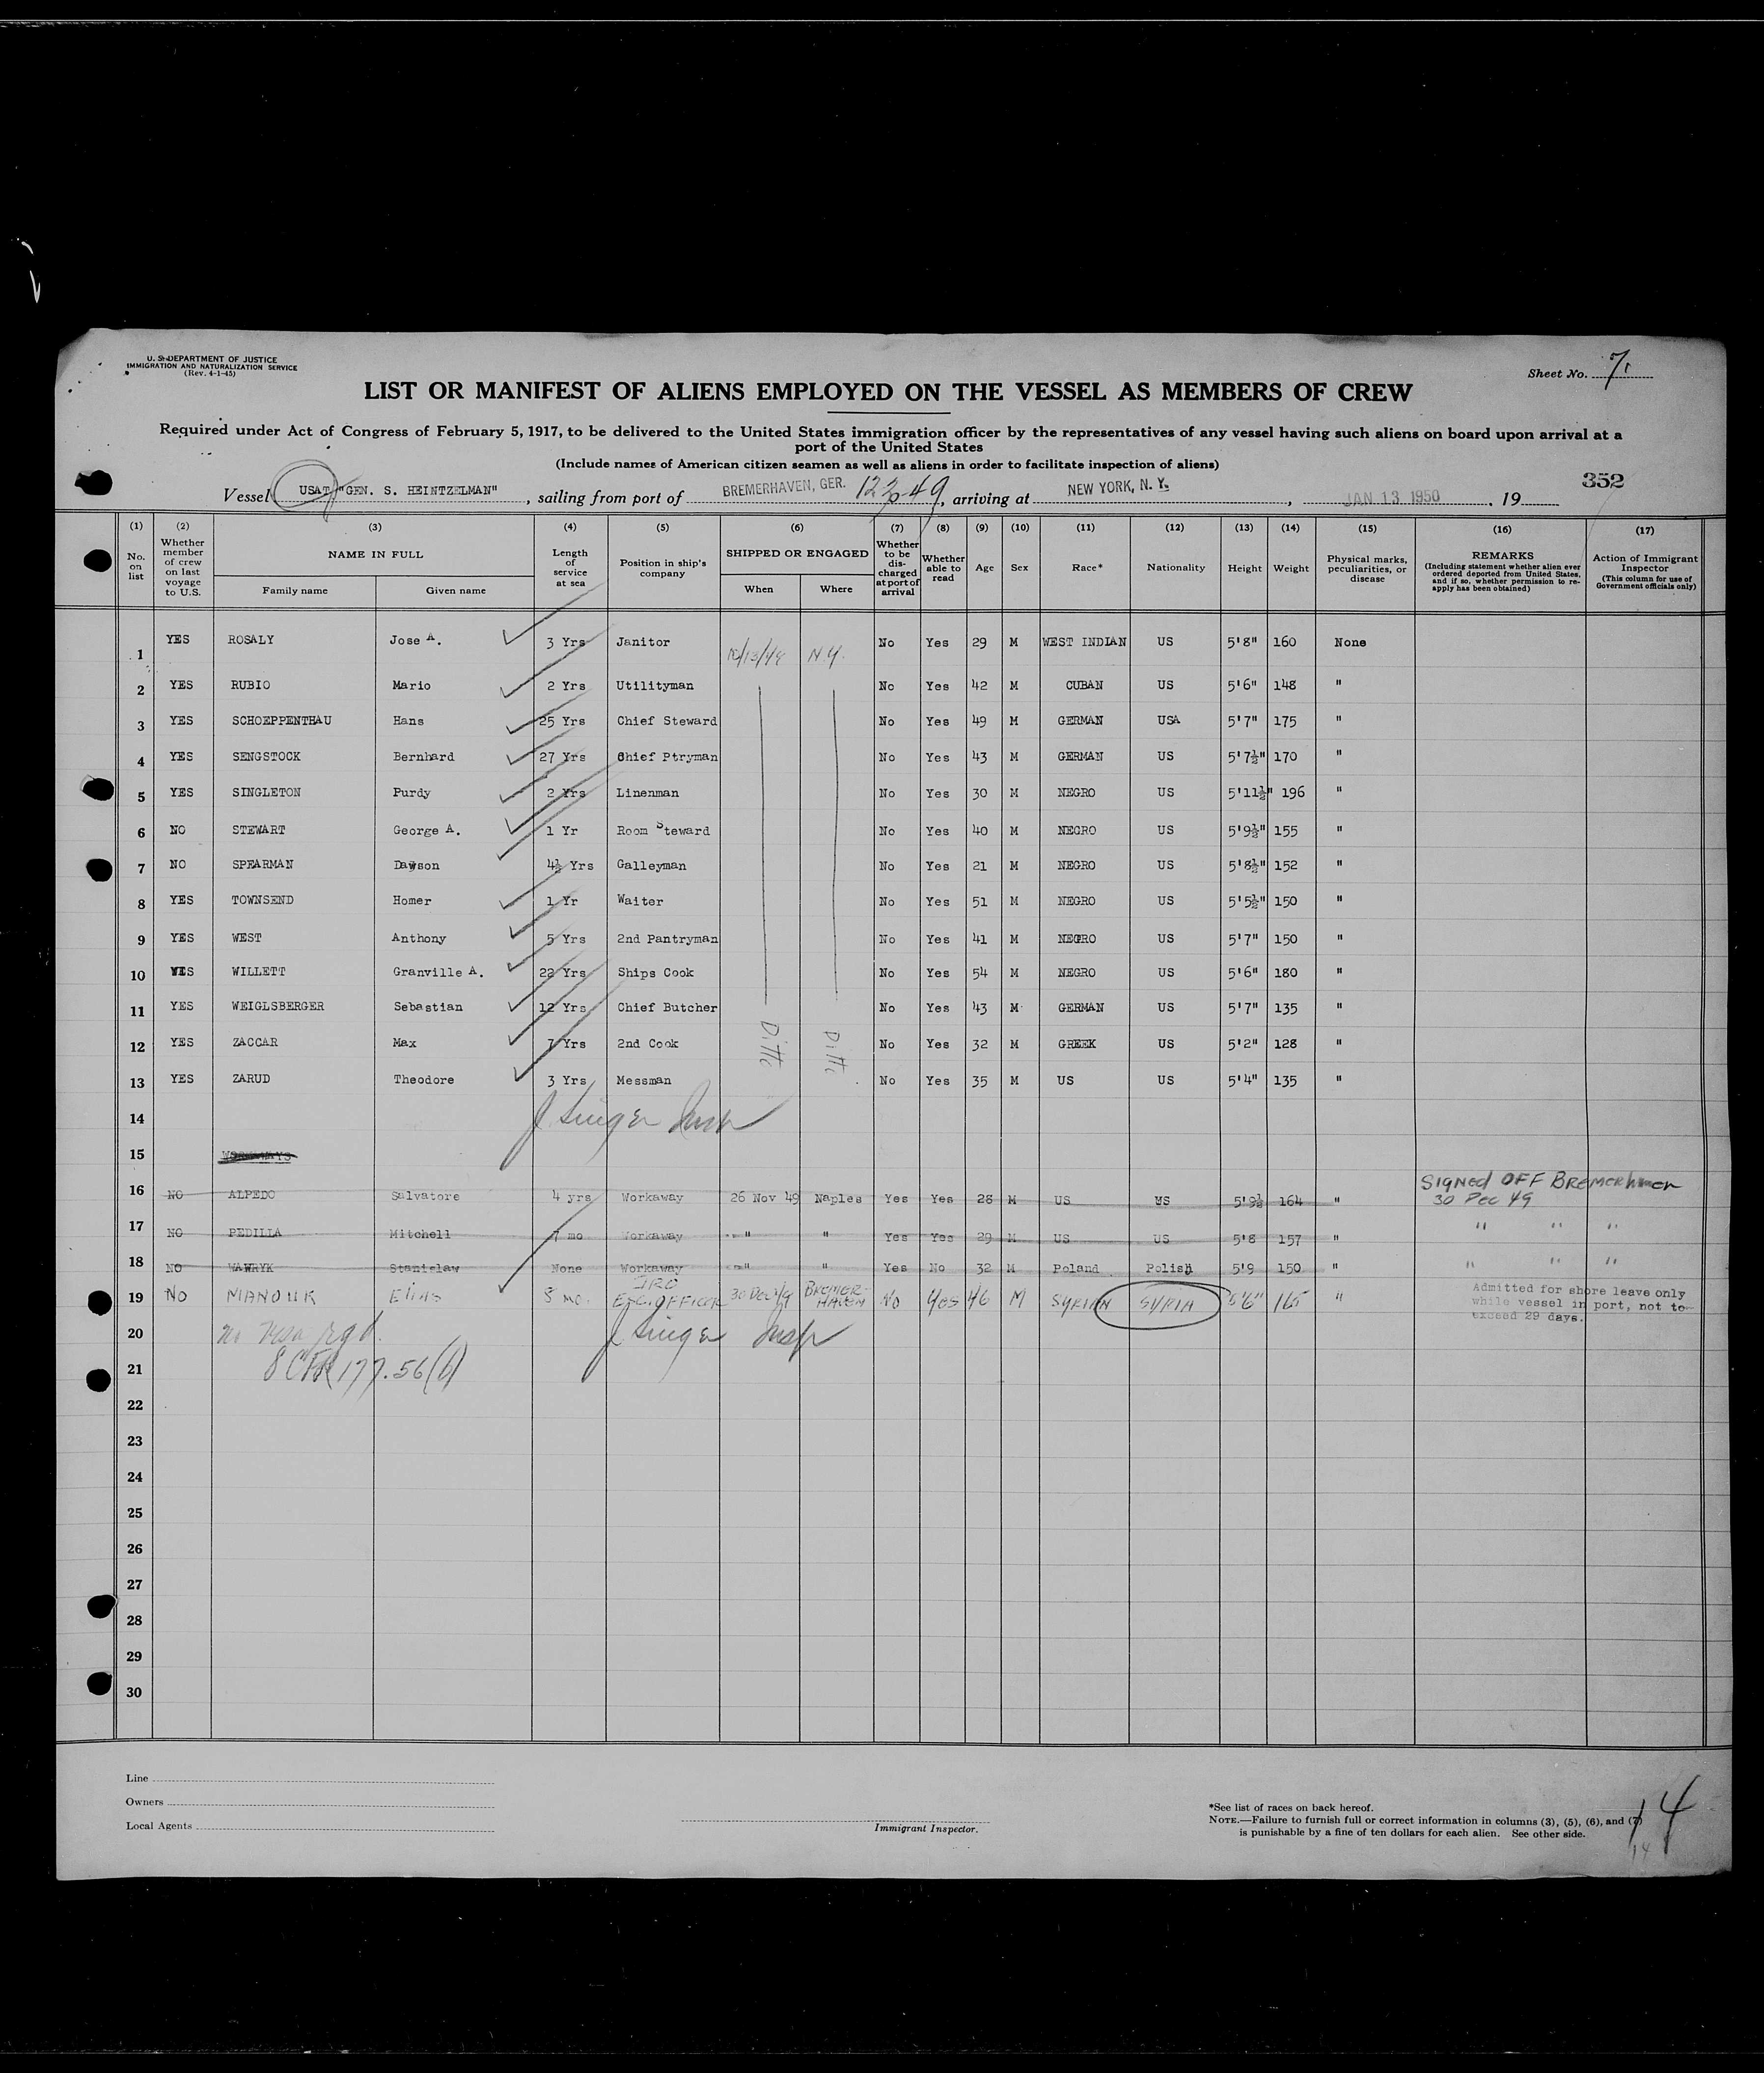 U. S. DEPARTMENT OF JUSTICE
IMMIGRATION AND NATURALIZATION SERVICE
(Rev. 4-1-45)
Sheet No. 7
LIST OR MANIFEST OF ALIENS EMPLOYED ON THE VESSEL AS MEMBERS OF CREW
Required under Act of Congress of February 5, 1917, to be delivered to the United States immigration officer by the representatives of any vessel having such aliens on board upon arrival at a
port of the United States
(Include names of American citizen seamen as well as aliens in order to facilitate inspection of aliens)
352
Vessel USAT "GEN. S. HEINTZELMAN", sailing from port of BREMERHAVEN, GER. 12 30 49, arriving at NEW YORK, N. Y., JAN 13 1950, 19
(1) (2) (3) (4) (5) (6) (7) (8) (9) (10) (11) (12) (13) (14) (15) (16) (17)
No. on list
Whether member of crew on last voyage to U.S.
NAME IN FULL
Family name Given name
Length of service at sea
Position in ship's company
SHIPPED OR ENGAGED
When Where
Whether to be discharged at port of arrival
Whether able to read
Age Sex Race* Nationality Height Weight
Physical marks, peculiarities, or disease
REMARKS
(Including statement whether alien ever ordered deported from United States, and if so, whether permission to re-apply has been obtained)
Action of Immigrant Inspector
(This column for use of Government officials only)
1 YES ROSALY Jose A. 3 Yrs Janitor 10/13/49 N.Y. No Yes 29 M WEST INDIAN US 5'8" 160 None
2 YES RUBIO Mario 2 Yrs Utilityman No Yes 42 M CUBAN US 5'6" 148 "
3 YES SCHOEPPENTHAU Hans 25 Yrs Chief Steward No Yes 49 M GERMAN USA 5'7" 175 "
4 YES SENGSTOCK Bernhard 27 Yrs Chief Ptryman No Yes 43 M GERMAN US 5'7½" 170 "
5 YES SINGLETON Purdy 2 Yrs Linenman No Yes 30 M NEGRO US 5'11½" 196 "
6 NO STEWART George A. 1 Yr Room Steward No Yes 40 M NEGRO US 5'9½" 155 "
7 NO SPEARMAN Dawson 4½ Yrs Galleyman No Yes 21 M NEGRO US 5'8½" 152 "
8 YES TOWNSEND Homer 1 Yr Waiter No Yes 51 M NEGRO US 5'5½" 150 "
9 YES WEST Anthony 5 Yrs 2nd Pantryman No Yes 41 M NEGRO US 5'7" 150 "
10 YES WILLETT Granville A. 22 Yrs Ships Cook No Yes 54 M NEGRO US 5'6" 180 "
11 YES WEIGLSBERGER Sebastian 12 Yrs Chief Butcher No Yes 43 M GERMAN US 5'7" 135 "
12 YES ZACCAR Max 7 Yrs 2nd Cook Ditto Ditto No Yes 32 M GREEK US 5'2" 128 "
13 YES ZARUD Theodore 3 Yrs Messman No Yes 35 M US US 5'4" 135 "
14 J Singer Insp
15 WORKAWAYS
16 NO ALPEDO Salvatore 4 yrs Workaway 26 Nov 49 Naples Yes Yes 28 M US US 5'9½ 164 " Signed OFF Bremerhaven
30 Dec 49
17 NO PEDILLA Mitchell 7 mo Workaway " " Yes Yes 29 M US US 5'8 157 " " " "
18 NO WAWRYK Stanislaw None Workaway " " Yes No 32 M Poland Polish 5'9 150 " " " "
19 No MANOUK Elias 8 mo. IRO ESC. OFFICER 30 Dec 49 BREMERHAVEN No Yes 46 M SYRIAN SYRIA 5'6" 165 " Admitted for shore leave only
while vessel in port, not to
exceed 29 days.
20 no visa rqd. J Singer Insp
21 8 CFR 177.56(b)
22
23
24
25
26
27
28
29
30
Line
Owners
Local Agents
Immigrant Inspector.
*See list of races on back hereof.
NOTE.—Failure to furnish full or correct information in columns (3), (5), (6), and (7)
is punishable by a fine of ten dollars for each alien. See other side.
14
14